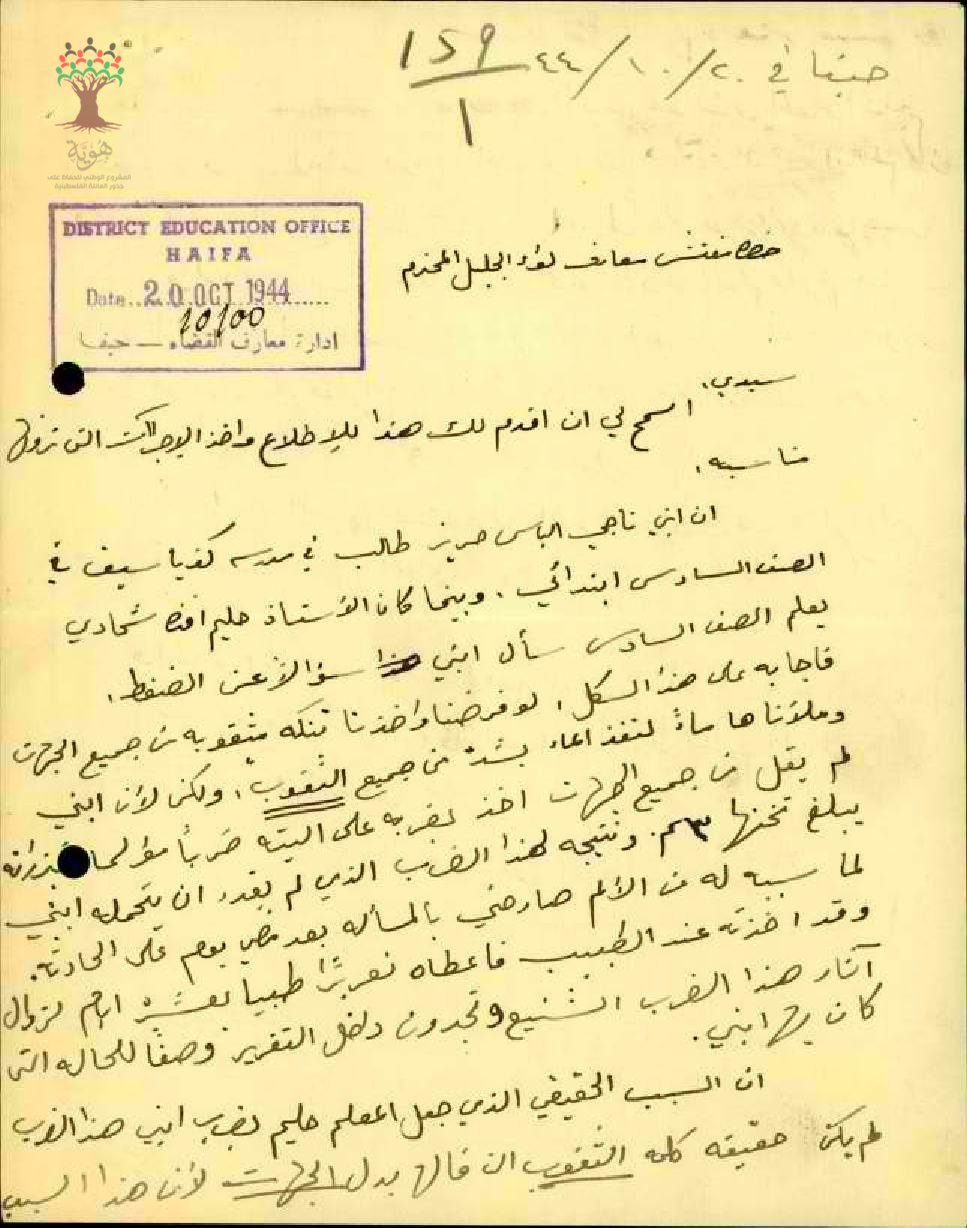 حيفا في ٢٠/١٠/٤٤
159
1
هوية
المشروع الوطني للحفاظ على
جذور العائلة الفلسطينية
DISTRICT EDUCATION OFFICE
HAIFA
Date 20 OCT 1944
10/00
ادارة معارف القضاء — حيفا
حضرة مفتش معارف لواء الجليل المحترم
سيدي،
اسمح لي ان اقدم لك هذا للإطلاع واخذ الإجراآت التي ترونها
مناسبه.
ان ابني ناجي الياس طالب في مدرسه كفرياسيف في
الصف السادس ابتدائي. وبينما كان الأستاذ حليم افندي شحادي
يعلم الصف السادس سأل ابني هذا سؤالاً عن الضغط.
فاجابه على هذا الشكل، لو فرضنا واخذنا تنكه مثقوبه من جميع الجهات
وملأناها ماءً لنفذ الماء بشدة من جميع الثقوب، ولكن لأن ابني
لم يقل من جميع الجهات اخذ يضربه على اليته ضرباً مؤلماً بخيزرانه
يبلغ ثخنها ٣ سم. ونتيجه لهذا الضرب الذي لم يقدر ان يتحمله ابني
لما سببه له من الألم صارحني بالمسأله بعد مضي يوم على الحادثة.
وقد اخذته عند الطبيب فاعطاه تقريراً طبياً بعشرة ايام لزوال
آثار هذا الضرب الشنيع وتجدون داخل التقرير وصفاً للحاله التي
كان بها ابني.
ان السبب الحقيقي الذي جعل المعلم حليم يضرب ابني هذا الضرب
لم يكن حقيقه كلمه الثقوب التي قالها بدل الجهات لأن هذا السبب